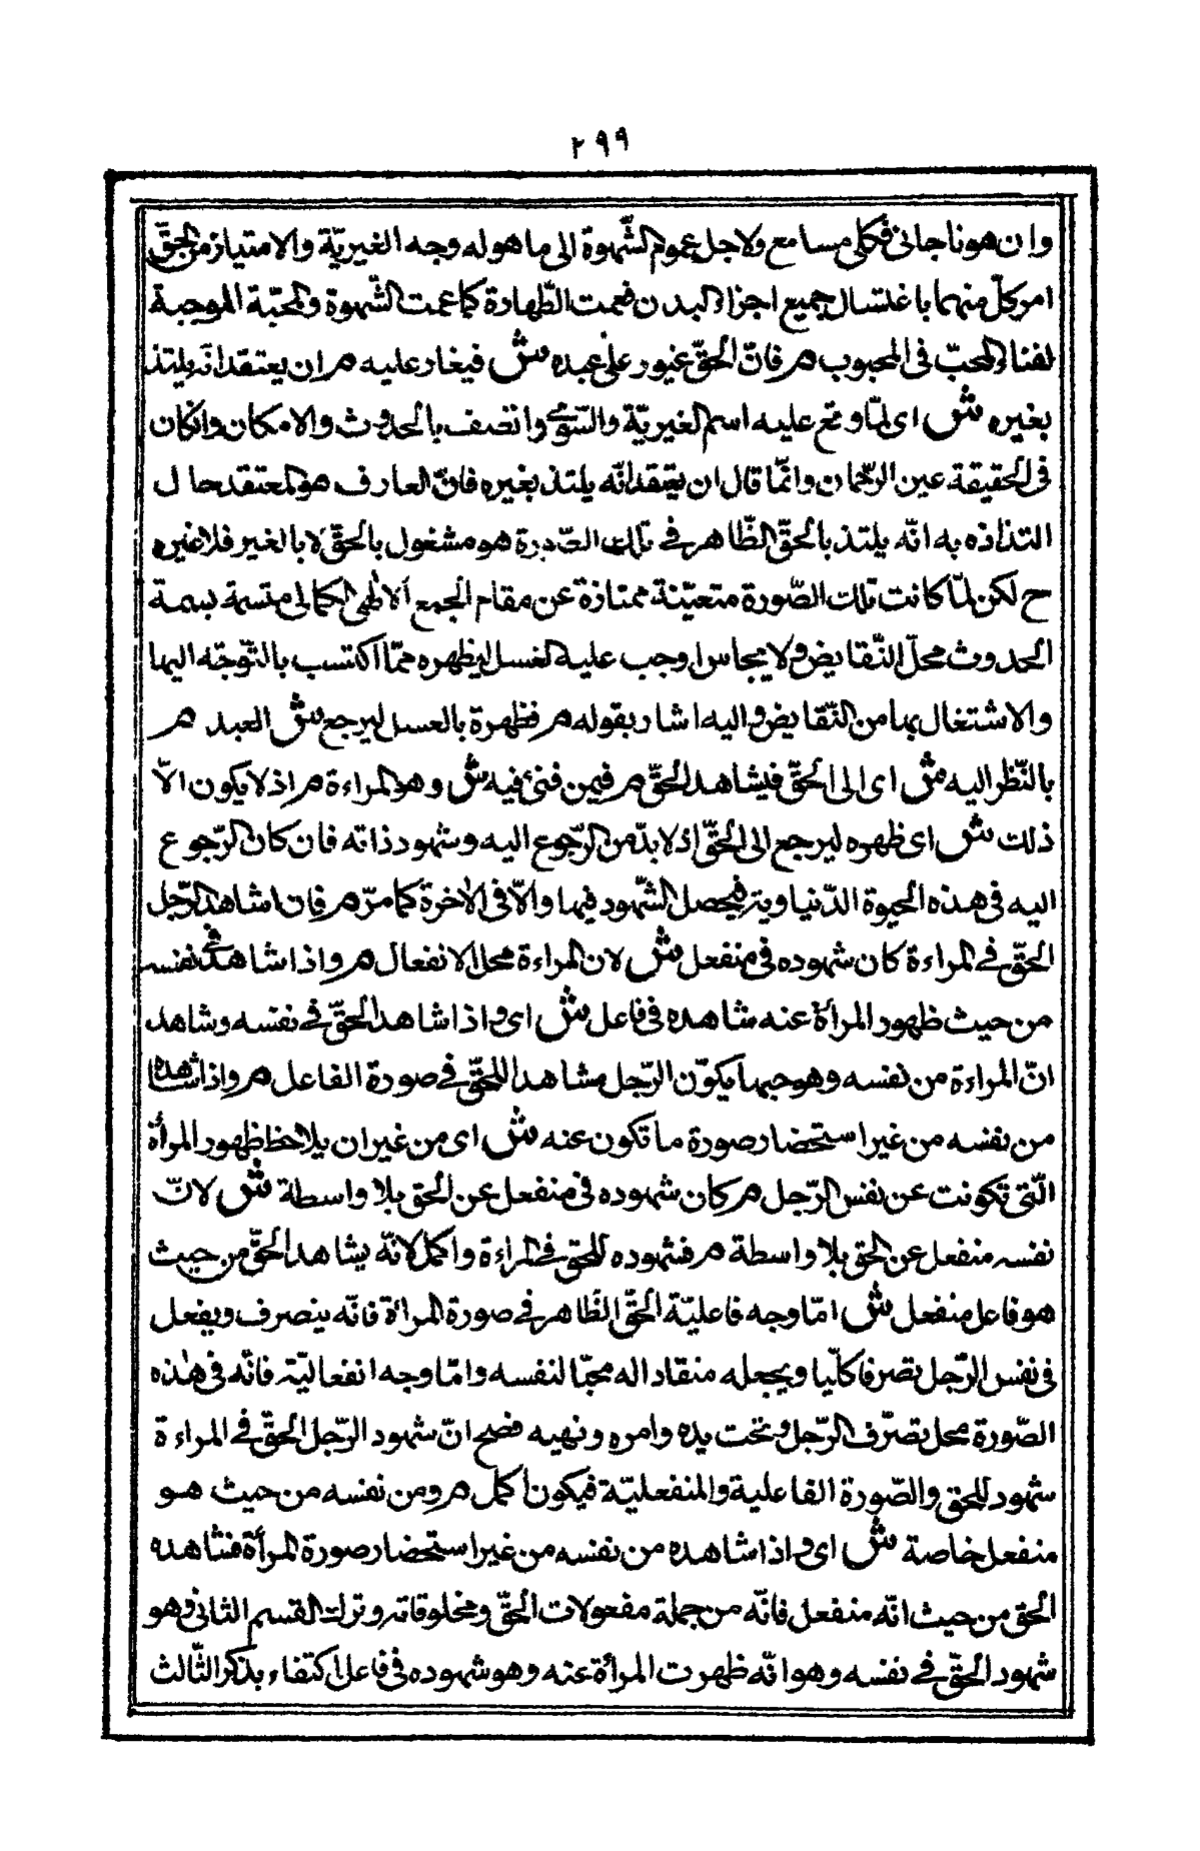 ٢٩٩
وان هو ناجانى فكلى مسامع ولاجل عموم الشّهوة الى ما هو له وجه الغيريّة والامتياز من الحقّ
امر كلّ منهما باغتسال جميع اجزاء البدن فعمت الطّهارة كما عمت الشّهوة والمحبّة الموجبة
لفناء المحبّ فى المحبوب م فانّ الحقّ غيور على عبده ش فيغار عليه م ان يعتقد انّه يلتذ
بغيره ش اى لمّا وقع عليه اسم الغيريّة والسّوى واتصف بالحدوث والامكان وان كان
فى الحقيقة عين الرّحمان وانّما قال ان يعتقد انّه يلتذ بغيره فانّ العارف هو المعتقد حال
التذاذه به انّه يلتذ بالحقّ الظّاهر فى تلك الصّورة هو مشغول بالحقّ لا بالغير فلا غيره
ح لكن لمّا كانت تلك الصّورة متعيّنة ممتازة عن مقام الجمع الالٰهى الكمالى متسمة بسمة
الحدوث محلّ النّقايض ولا يجاس اوجب عليه الغسل ليظهره ممّا اكتسب بالتّوجّه اليها
والاشتغال بها من النّقايض واليه اشار بقوله م فظهرة بالغسل ليرجع ش العبد م
بالنّظر اليه ش اى الى الحقّ فيشاهد الحقّ م فيمن فنى فيه ش وهو المراءة م اذ لا يكون الاّ
ذلك ش اى ظهره ليرجع الى الحقّ اذ لا بدّ من الرّجوع اليه وشهود ذاته فان كان الرّجوع
اليه فى هذه الحيوة الدّنياوية فيحصل الشّهود فيها والاّ فى الاٰخرة كما مرّ م فان شاهد الرّجل
الحقّ فى المراءة كان شهوده فى منفعل ش لان المراءة محل الانفعال م واذا شاهد فى نفسه
من حيث ظهور المرأة عنه شاهده فى فاعل ش اى واذا شاهد الحقّ فى نفسه وشاهد
انّ المراءة من نفسه وهو حبها يكوّن الرّجل مشاهدا للحقّ فى صورة الفاعل م واذا شاهده
من نفسه من غير استحضار صورة ما تكون عنه ش اى من غير ان يلاحظ ظهور المرأة
الّتى تكونت عن نفس الرّجل م كان شهوده فى منفعل عن الحق بلا واسطة ش لانّ
نفسه منفعل عن الحق بلا واسطة م فشهوده للحق فى المراءة واكمل لانّه يشاهد الحقّ من حيث
هو فاعل منفعل ش امّا وجه فاعليّة الحقّ الظّاهر فى صورة المرأة فانّه ينصرف ويفعل
فى نفس الرّجل تصرفا كلّيا ويجعله منقادا له محبّا لنفسه وامّا وجه انفعاليّته فانّه فى هٰذه
الصّورة محل تصرّف الرّجل وتحت يده وامره ونهيه فصح انّ شهود الرّجل الحقّ فى المراءة
شهود للحق والصّورة الفاعلية والمنفعليّة فيكون اكمل م ومن نفسه من حيث هو
منفعل خاصة ش اى واذا شاهده من نفسه من غير استحضار صورة المرأة فشاهده
الحق من حيث انّه منفعل فانّه من جملة مفعولات الحقّ ومخلوقاته وترك القسم الثانى وهو
شهود الحقّ فى نفسه وهو انّه ظهرت المرأة عنه وهو شهوده فى فاعل اكتفاء بذكر الثّالث